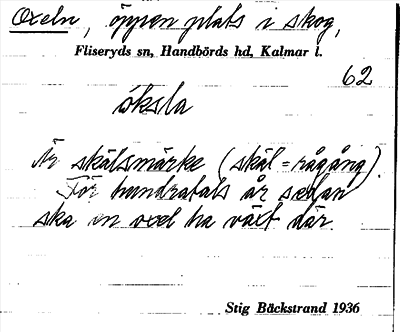 Oxeln, öppen plats i skog,
Fliseryds sn, Handbörds hd, Kalmar l.
62
öksla
Är skälsmärke (skäl = rågång).
För hundratals år sedan
ska en oxel ha växt där.
Stig Bäckstrand 1936